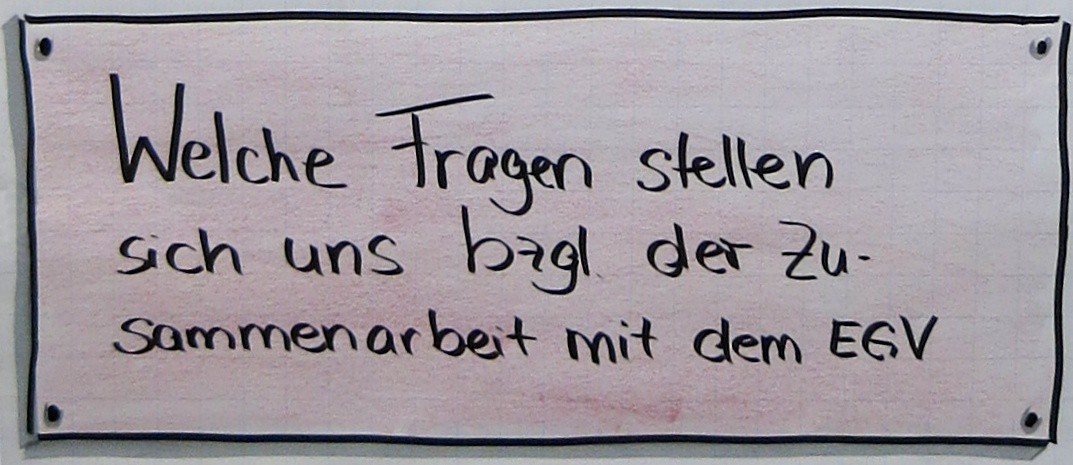 Welche Fragen stellen
sich uns bzgl. der Zu-
sammenarbeit mit dem EGV